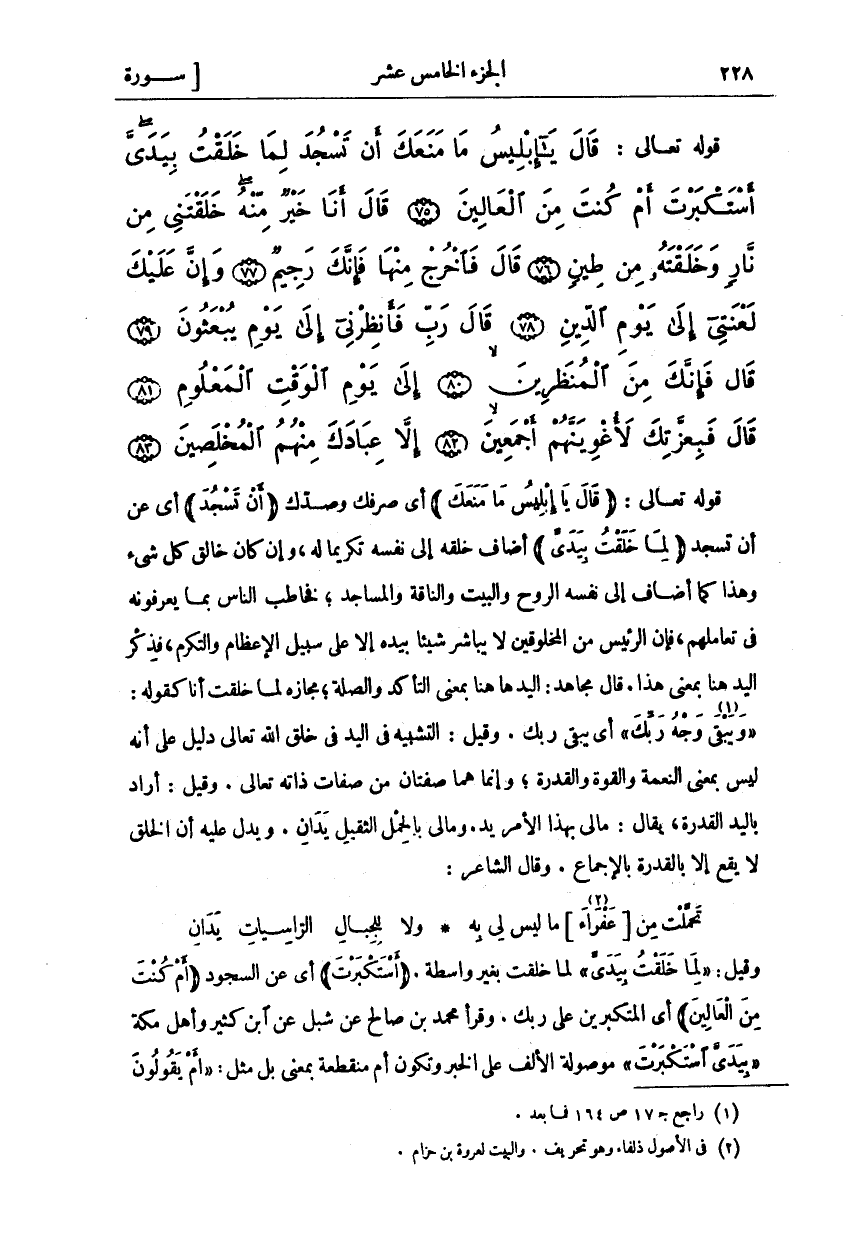 ٢٢٨ الجزء الخامس عشر [ ســورة
قوله تعـالى : قَالَ يَـٰٓإِبْلِيسُ مَا مَنَعَكَ أَن تَسْجُدَ لِمَا خَلَقْتُ بِيَدَىَّۖ
أَسْتَكْبَرْتَ أَمْ كُنتَ مِنَ ٱلْعَالِينَ ﴿٧٥﴾ قَالَ أَنَا خَيْرٌ مِّنْهُۖ خَلَقْتَنِى مِن
نَّارٍ وَخَلَقْتَهُۥ مِن طِينٍ ﴿٧٦﴾ قَالَ فَٱخْرُجْ مِنْهَا فَإِنَّكَ رَجِيمٌ ﴿٧٧﴾ وَإِنَّ عَلَيْكَ
لَعْنَتِىٓ إِلَىٰ يَوْمِ ٱلدِّينِ ﴿٧٨﴾ قَالَ رَبِّ فَأَنظِرْنِىٓ إِلَىٰ يَوْمِ يُبْعَثُونَ ﴿٧٩﴾
قَالَ فَإِنَّكَ مِنَ ٱلْمُنظَرِينَۙ ﴿٨٠﴾ إِلَىٰ يَوْمِ ٱلْوَقْتِ ٱلْمَعْلُومِ ﴿٨١﴾
قَالَ فَبِعِزَّتِكَ لَأُغْوِيَنَّهُمْ أَجْمَعِينَۙ ﴿٨٢﴾ إِلَّا عِبَادَكَ مِنْهُمُ ٱلْمُخْلَصِينَ ﴿٨٣﴾
قوله تعـالى : ﴿ قَالَ يَا إِبْلِيسُ مَا مَنَعَكَ ﴾ أى صرفك وصـدّك ﴿ أَنْ تَسْجُدَ ﴾ أى عن
أن تسجد ﴿ لِمَـا خَلَقْتُ بِيَدَىَّ ﴾ أضاف خلقه إلى نفسه تكريما له ، وإن كان خالق كل شىء
وهذا كما أضـاف إلى نفسه الروح والبيت والناقة والمساجد ؛ فخاطب الناس بمـا يعرفونه
فى تعاملهم ، فإن الرئيس من المخلوقين لا يباشر شيئا بيده إلا على سبيل الإعظام والتكرم ، فذِكْر
اليد هنا بمعنى هذا . قال مجاهد : اليد ها هنا بمعنى التأكد والصلة ؛ مجازه لمـا خلقت أنا كقوله :
« وَيَبْقَى وَجْهُ رَبِّكَ »(١) أى يبقى ربك . وقيل : التشبيه فى اليد فى خلق الله تعالى دليل على أنه
ليس بمعنى النعمة والقوة والقدرة ؛ وإنما هما صفتان من صفات ذاته تعالى . وقيل : أراد
باليد القدرة ، يقال : مالى بهذا الأمر يد . ومالى بالحِمْل الثقيل يَدَانِ . ويدل عليه أن الخلق
لا يقع إلا بالقدرة بالإجماع . وقال الشاعر :
تَحمَّلْت مِن [ عَفْرَاءَ ](٢) ما ليس لى بِه * ولا لِلجبـالِ الرّاسِـياتِ يَدَانِ
وقيل : « لِمَا خَلَقْتُ بِيَدَىَّ » لما خلقت بغير واسطة . ﴿ أَسْتَكْبَرْتَ ﴾ أى عن السجود ﴿ أَمْ كُنْتَ
مِنَ الْعَالِينَ ﴾ أى المتكبرين على ربك . وقرأ محمد بن صالح عن شبل عن ٱبن كثير وأهل مكة
« بِيَدَىَّ ٱسْتَكْبَرْتَ » موصولة الألف على الخبر وتكون أم منقطعة بمعنى بل مثل : « أَمْ يَقُولُونَ
(١) راجع جـ ١٧ ص ١٦٤ فـا بعد .
(٢) فى الأصول ذلفاء وهو تحريف . والبيت لعروة بن حزام .